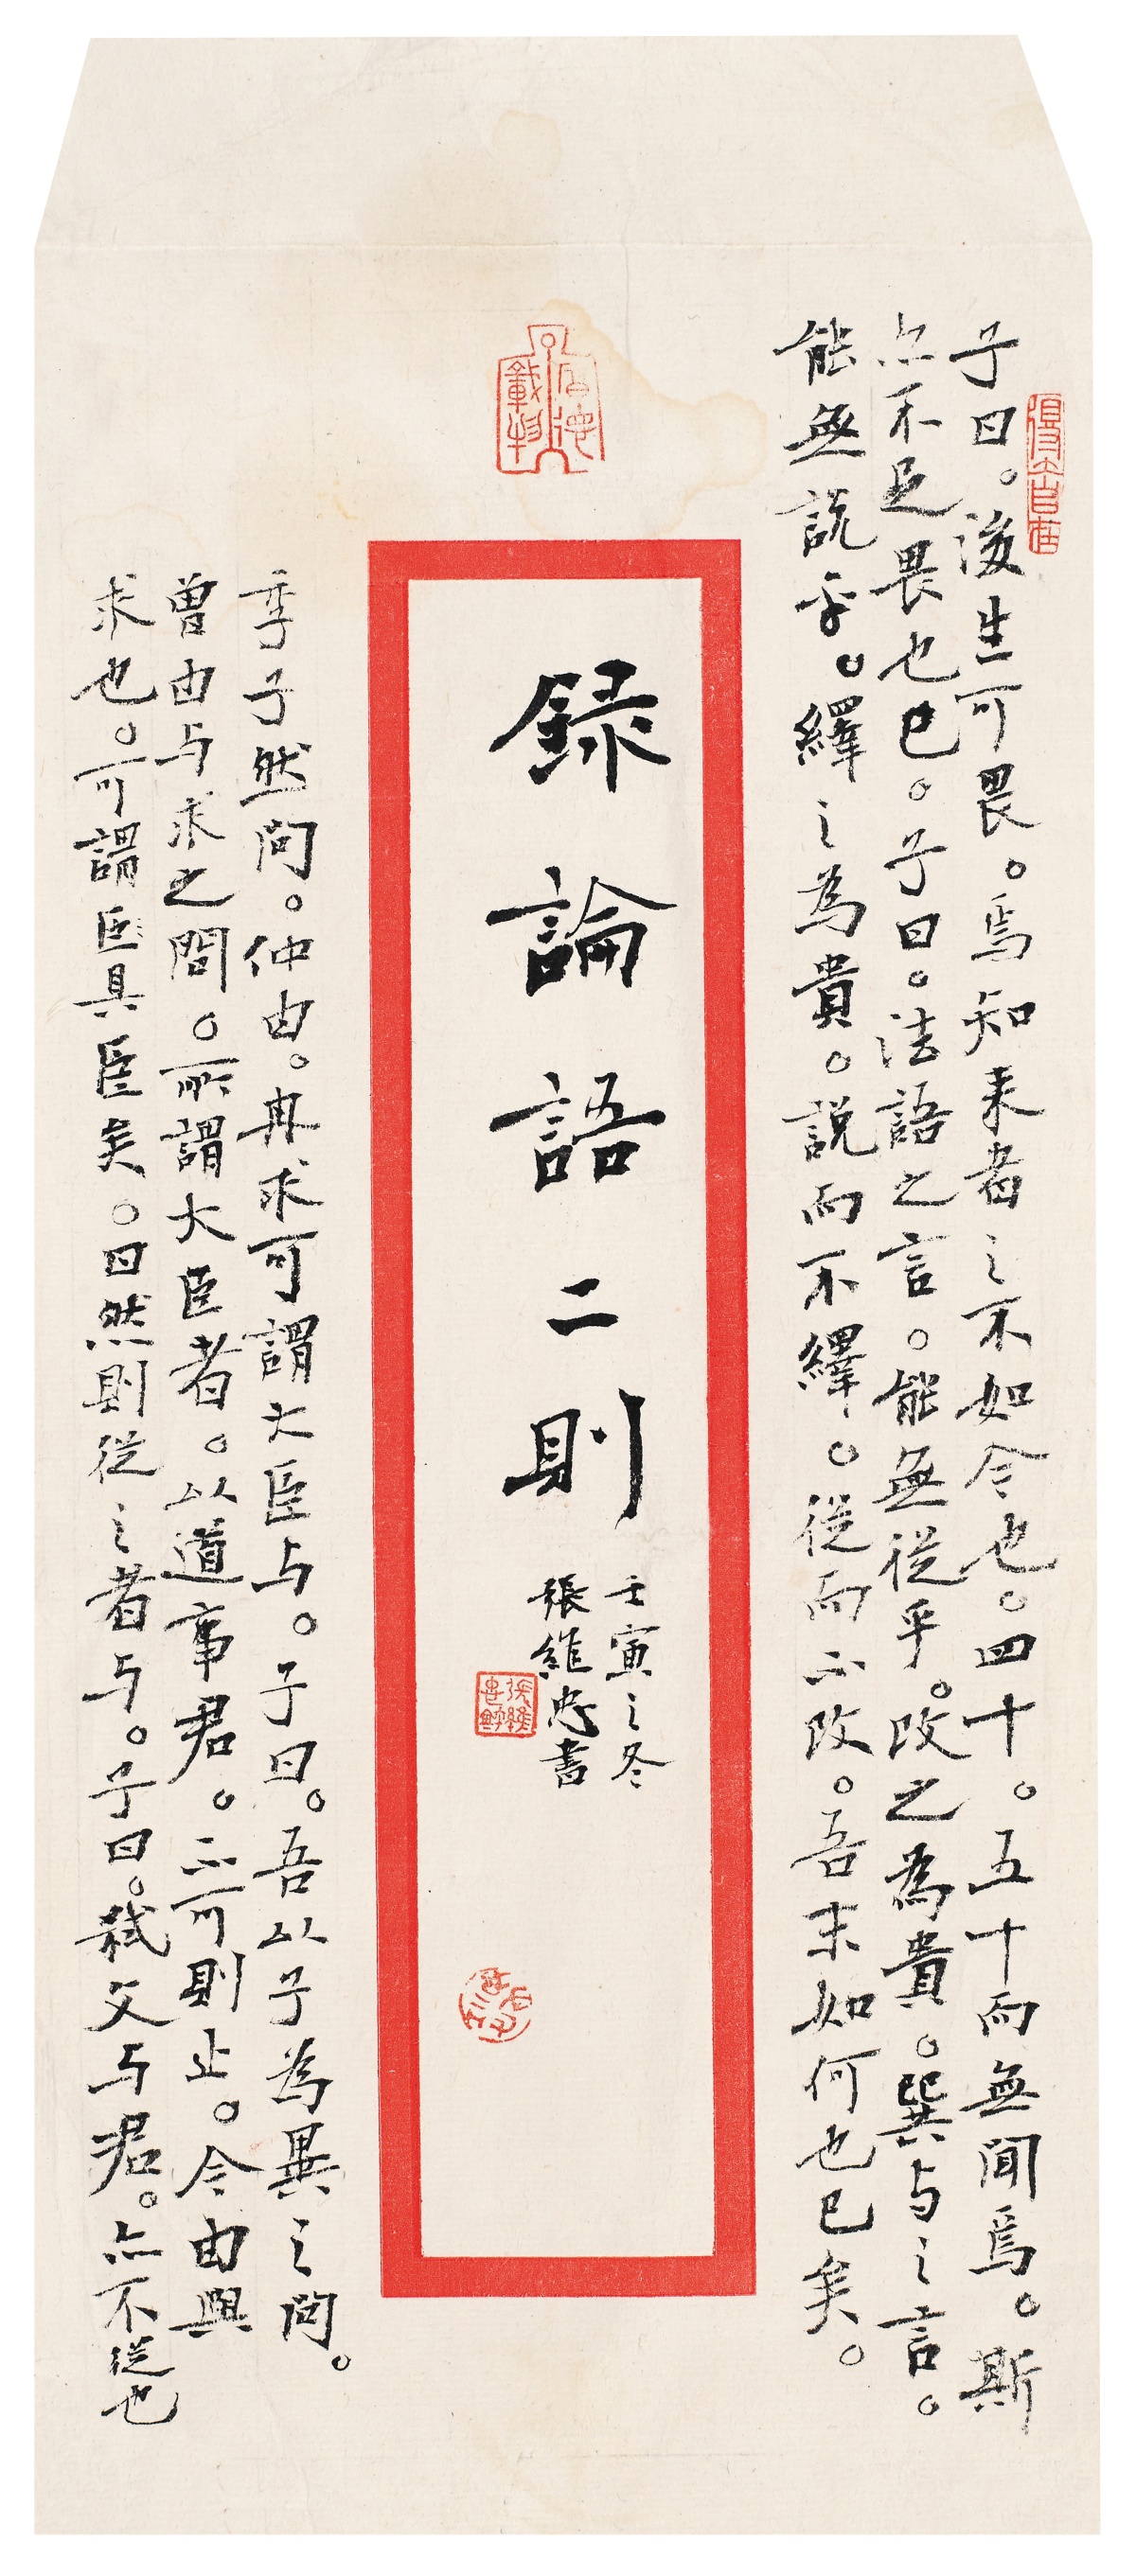 子曰。後生可畏。焉知来者之不如今也。四十。五十而無聞焉。斯
亦不足畏也已。子曰。法語之言。能無從乎。改之為貴。巽与之言。
能無説乎。繹之為貴。説而不繹。從而不改。吾末如何也已矣。
録論語二則
壬寅之冬
張維忠書
季子然问。仲由。冉求可謂大臣与。子曰。吾以子為異之问。
曾由与求之間。所謂大臣者。以道事君。不可則止。今由與
求也。可謂臣具臣矣。曰然則從之者与。子曰。弑父与君。亦不從也